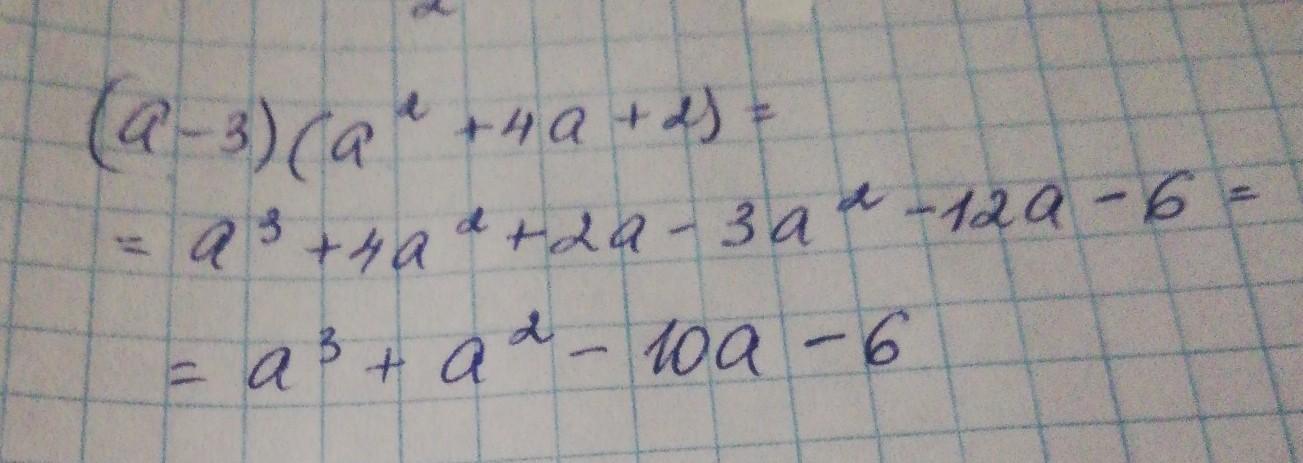 (a-3)(a² +4a+2)=
= a³ +4a² +2a - 3a² -12a - 6 =
= a³ + a² - 10a - 6